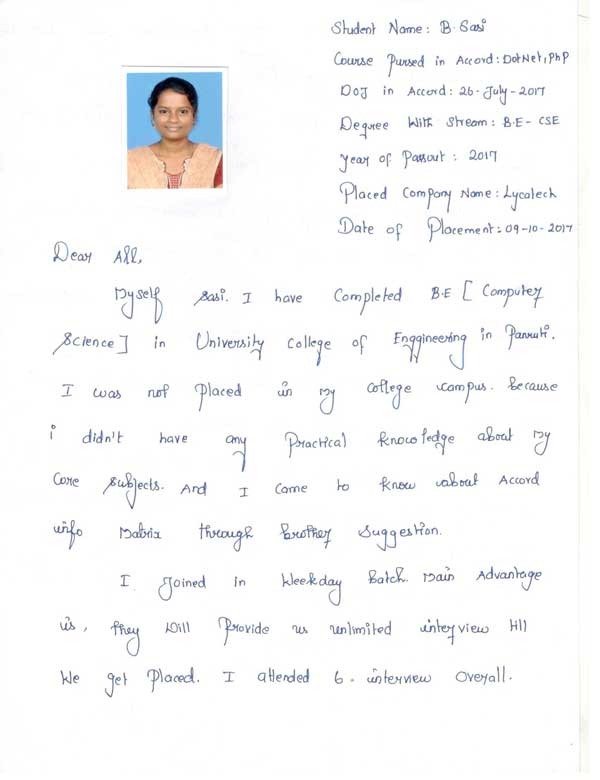 Student Name: B. Sasi
Course Pursed in Accord: DotNet, PhP
DOJ in Accord: 26-July-2017
Degree With Stream: B.E - CSE
Year of Passout: 2017
Placed Company Name: Lycatech
Date of Placement: 09-10-2017
Dear All,
Myself Sasi. I have Completed B.E [Computer
Science] in University College of Enggineering in Panruti.
I was not Placed in my college campus. Because
i didn't have any Practical knowledge about my
Core Subjects. And I came to know about Accord
info Matrix through brother Suggestion.
I joined in Weekday Batch. Main Advantage
is, they will Provide us unlimited interview till
We get Placed. I attended 6. interview overall.